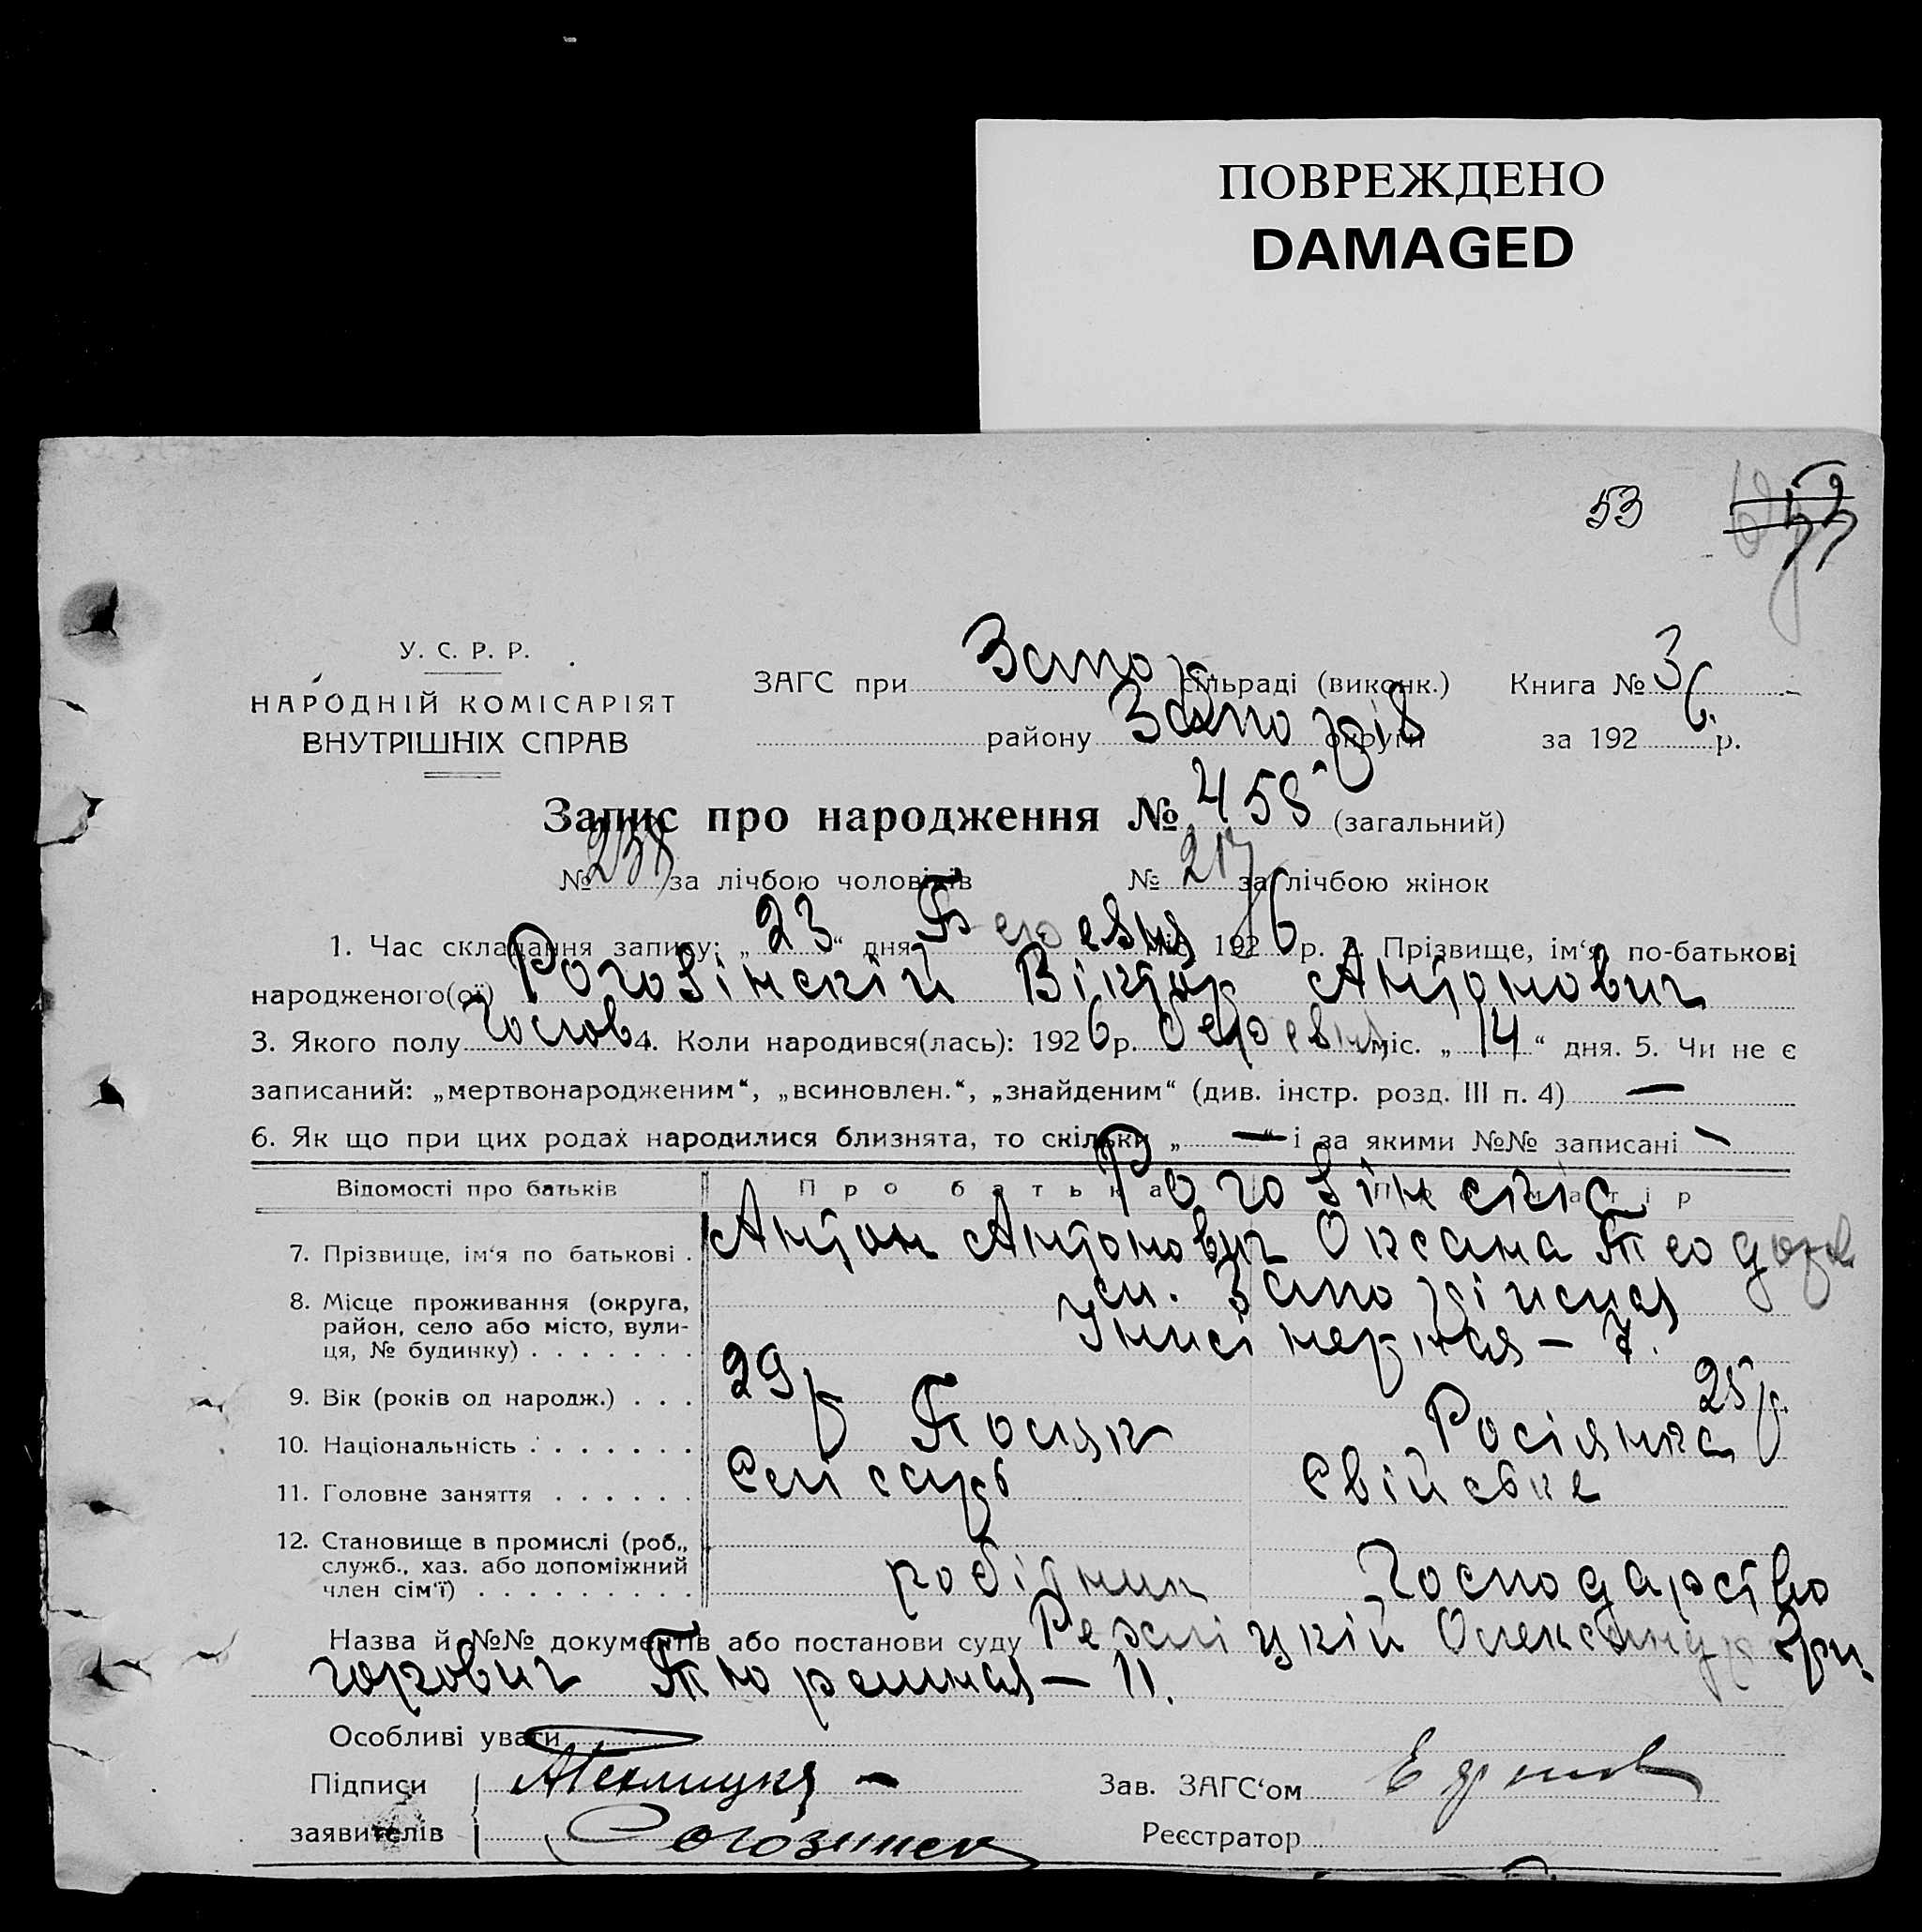 ПОВРЕЖДЕНО
DAMAGED
53
У. С. Р. Р.
НАРОДНІЙ КОМІСАРІЯТ
ВНУТРІШНІХ СПРАВ
ЗАГС при Запор сільраді (виконк.) Книга № 3
району Запоріз округи за 1926 р.
Запис про народження № 455 (загальний)
№ 238 за лічбою чоловіків № 217 за лічбою жінок
1. Час складання запису: „23“ дня міс. 1926 р. 2. Прізвище, ім‘я, по-батькові
народженого(ої) Роговінскій Віктор Антонович
3. Якого полу Чолов 4. Коли народився(лась): 1926 р. міс. „14“ дня. 5. Чи не є
записаний: „мертвонародженим“, „всиновлен.“, „знайденим“ (див. інстр. розд. III п. 4) —
6. Як що при цих родах народилися близнята, то скільки „—“ і за якими №№ записані —
Відомості про батьків Про батька Про матір
Роговінскіє
7. Прізвище, ім‘я по батькові . Антон Антонович Оксана
8. Місце проживання (округа, район, село або місто, вулиця, № будинку) . . . . . . .
Інжінерная – 7.
9. Вік (років од народж.) . . . 29 р 25 р.
10. Національність . . . . . . . Поляк Росіянка
11. Головне заняття . . . . . . Слісарь Свійське
12. Становище в промислі (роб., служб., хаз. або допоміжний член сім‘ї) . . . . . . . . . робітник Господарство
Назва й №№ документів або постанови суду Олександр Гри
горович Тюремная – 11.
Особливі уваги
Підписи
заявителів
Зав. ЗАГС‘ом
Реєстратор